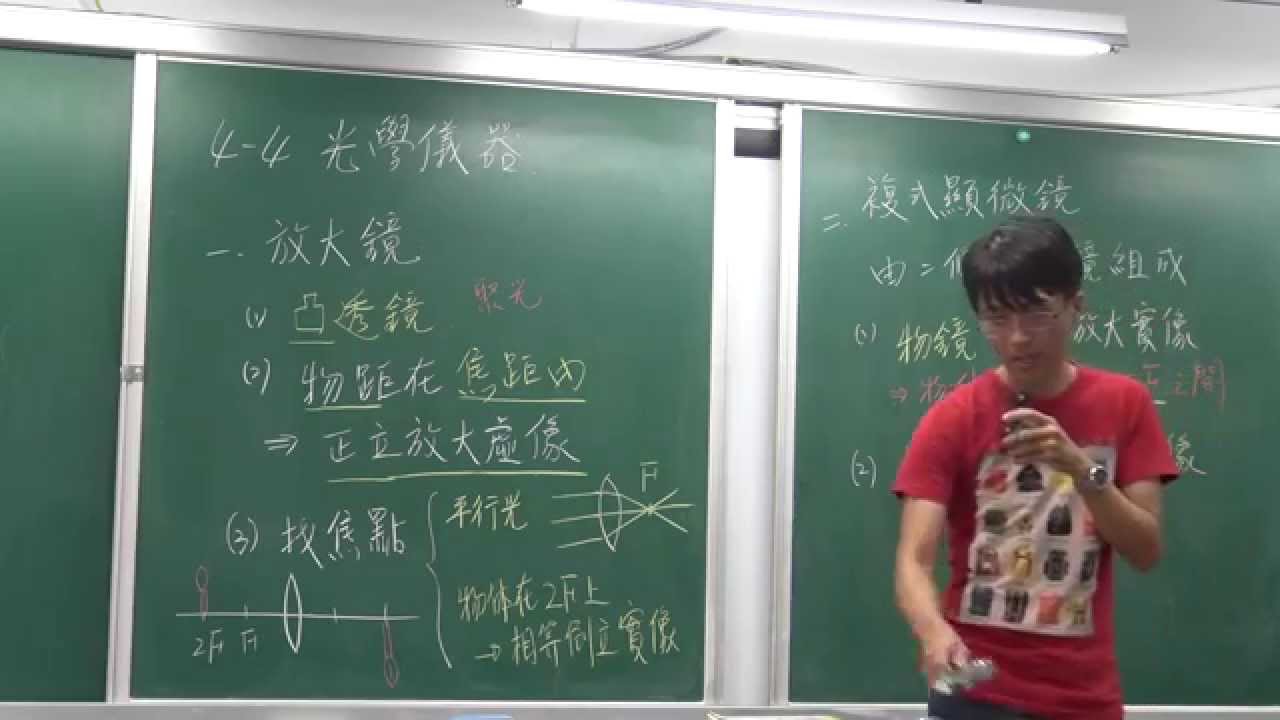 4-4 光學儀器
一. 放大鏡
(1) 凸透鏡 聚光
(2) 物距在焦距內
⇒ 正立放大虛像
(3) 找焦點
平行光
F
物体在2F上
→ 相等倒立實像
2F F
二. 複式顯微鏡
由二 鏡組成
(1) 物鏡 放大實像
⇒ 物 F之間
(2) 像